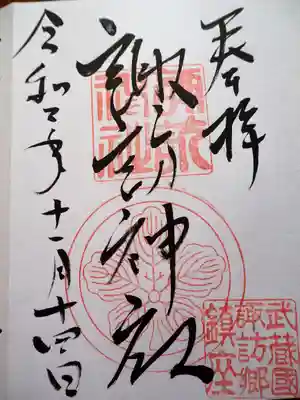 奉拝
諏訪神社
令和二年十一月十四日
武蔵國
諏訪郷
鎮座